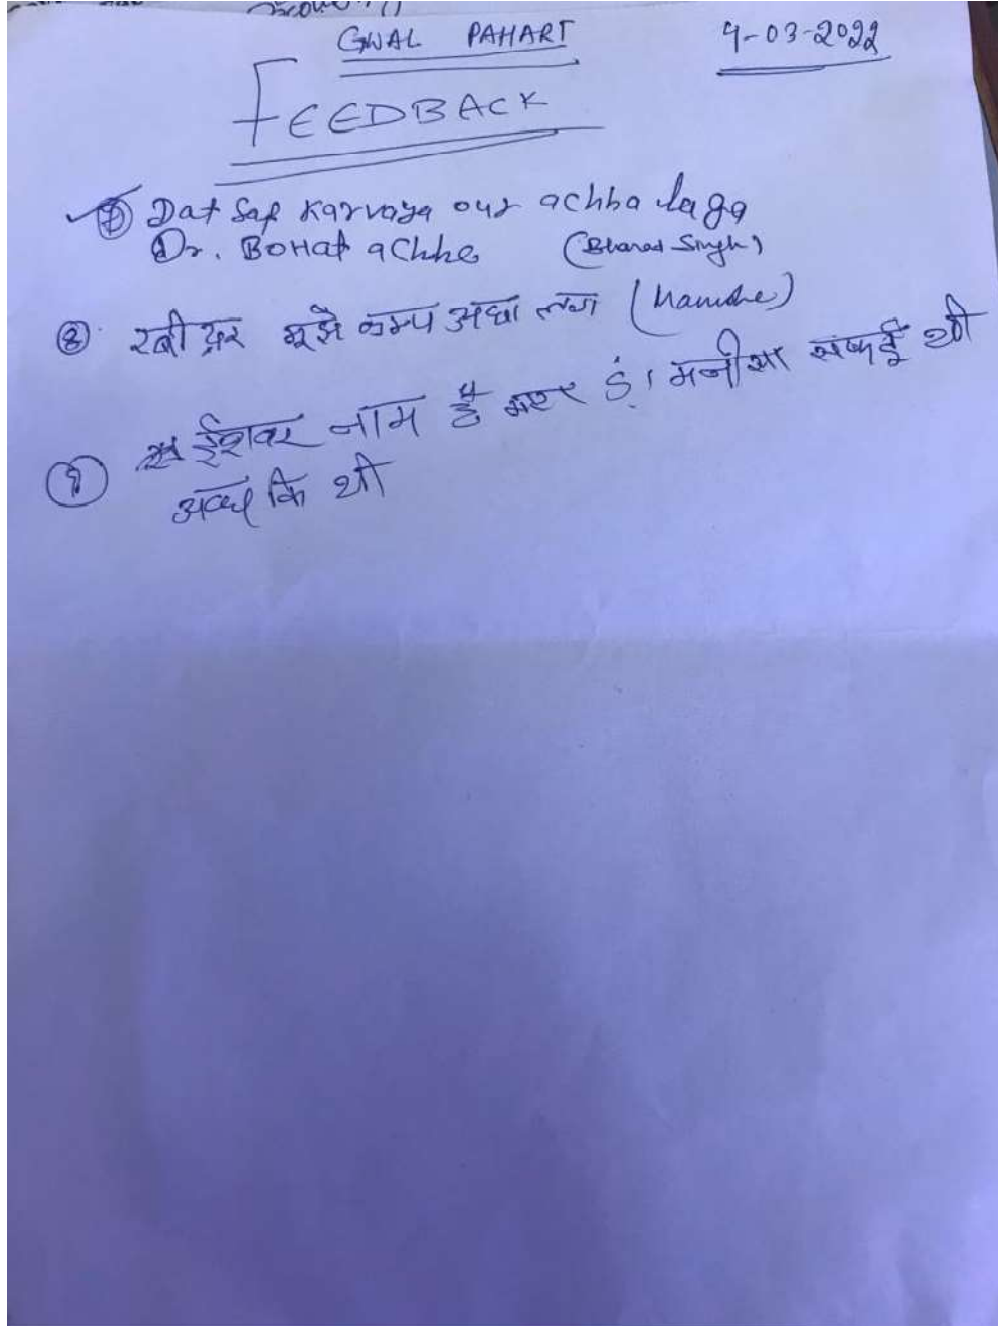 GWAL PAHARI
4-03-2022
FEEDBACK
⑦ Dat Saf Karvaya our achha laga
Dr. BoHat achhe (Bharat Singh)
⑧ मुझे कम्प अछा लगा
⑨ ईशवर नाम है डॉ। मनीसा सफाई थी
कि थी